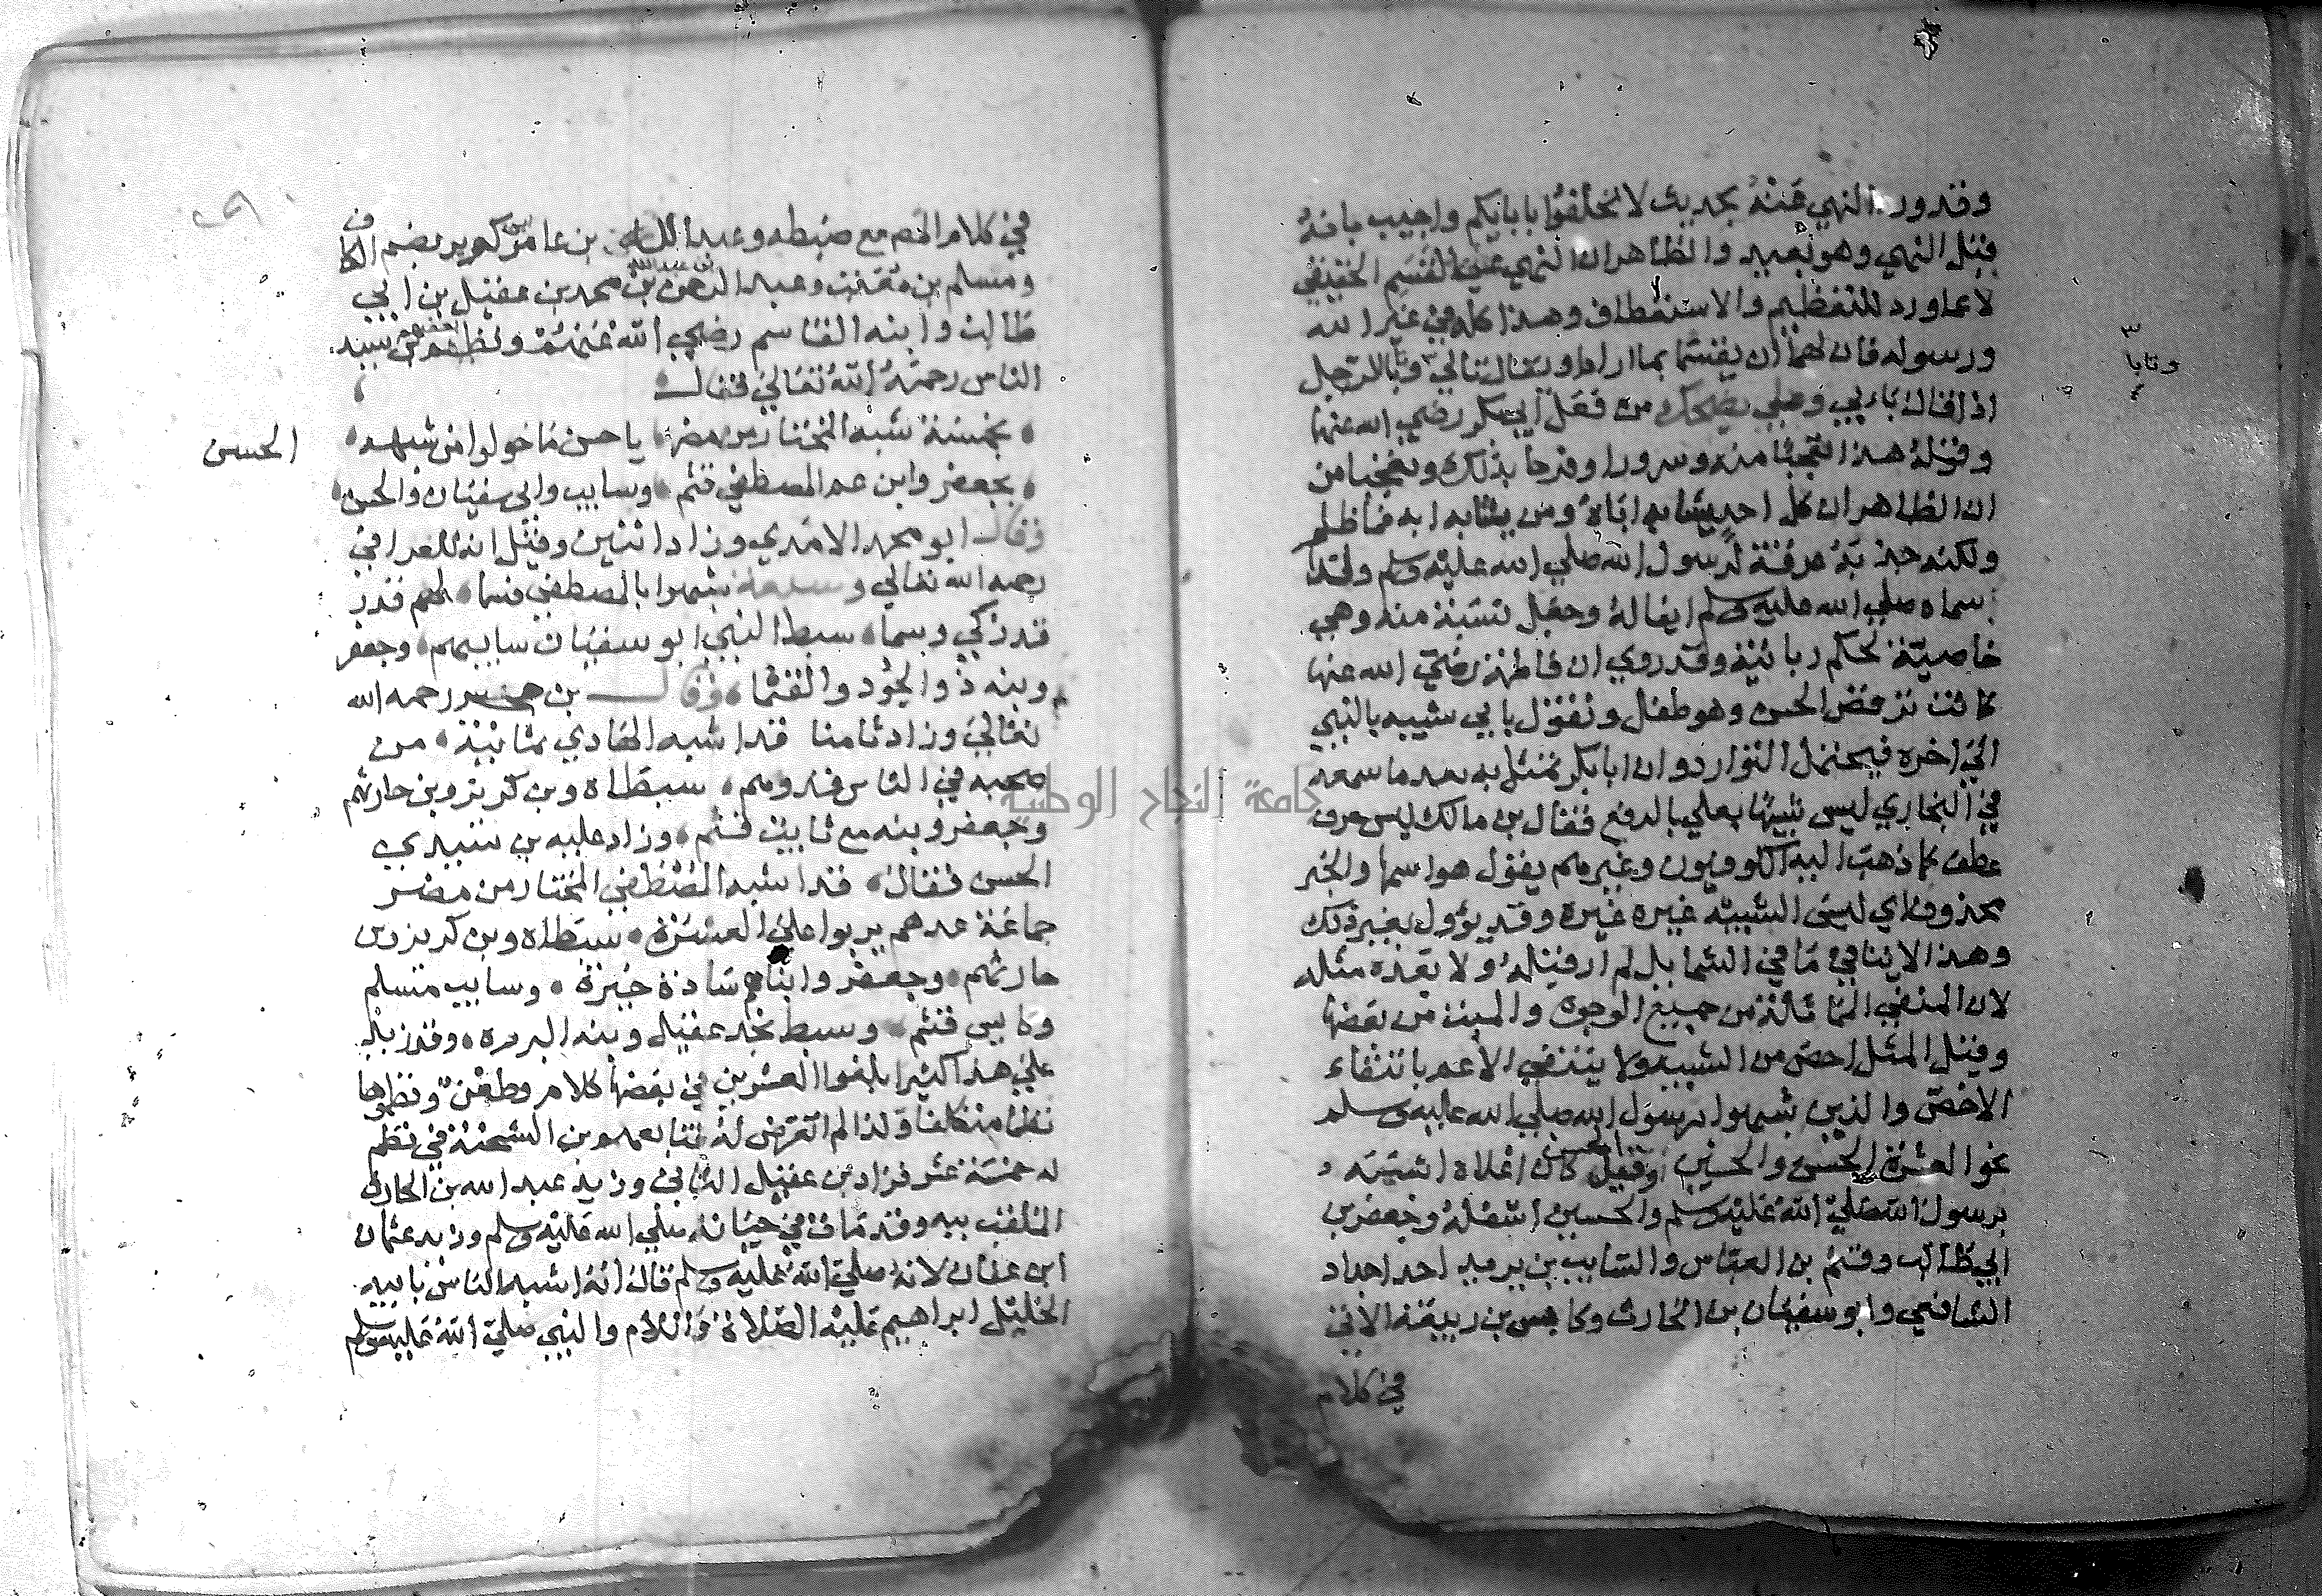 وقد ورد النهي عنه بحديث لا تحلفوا بابايكم واجيب بانه
قبل النهي وهو بعيد والظاهر ان النهي عن القسم الحقيقي
لا عما ورد للتعظيم والاستعطاف وهذا كله في غير الله
ورسوله فان لهما ان يقسما بما ارادا ويقال تالي وبالرجل
وتابا
اذا قال بابي وعلي يضحك من فعل ابي بكر رضي الله عنها
وقوله هذا تعجبا منه وسرورا وفرحا بذلك وتعجبا من
ان الظاهر ان كل احد يشابه اباه ومن يشابه ابه فما ظلم
ولكنه جذبته عرقة لرسول الله صلي الله عليه وسلم ولهذا
سماه صلي الله عليه وسلم ابناله وجعل نسبته منه وهي
خاصية لحكم ربانية وقد روي ان فاطمة رضي الله عنها
كانت ترقص الحسن وهو طفل وتقول بابي شبيه بالنبي
الي اخره فيحتمل التوارد وان ابا بكر تمثل به بعد ما سمعه
في البخاري ليس شبيها بعلي بالرفع فقال بن مالك ليس حرف
عطف كما ذهب اليه الكوفيون وغيرهم يقول هو اسمها والخبر
محذوف اي ليس الشبيه غيره وقد يؤول بغير ذلك
وهذا لا ينافي ما في الشمايل لم ار قبله ولا بعده مثله
لان المنفي المماثلة من جميع الوجوه والمثبت من بعضها
وقيل المثل اخص من الشبيه ولا ينتفي الاعم بانتفاء
الاخص والذين شبهوا برسول الله صلي الله عليه وسلم
نحو العشرة الحسن والحسين وقيل كان الحسن اعلاه اشبه
برسول الله صلي الله عليه وسلم والحسين اسفله وجعفر بن
ابي طالب وقثم بن العباس والسايب بن يزيد احد اجداد
الشافعي وابو سفيان بن الحارث وكابس بن ربيعة الاتي
في كلام
في كلام المص مع ضبطه وعبد الله بن عامر بن كريز بضم الكاف
ومسلم بن معتب وعبد الرحمن بن عبد الله بن محمد بن عقيل بن ابي
طالب وابنه القاسم رضي الله عنهم ونظم بعضهم بن سيد
الناس رحمه الله تعالي فقال
بخمسة شبه المختار من مضر يا حسن ما خولوا من شبهه الحسن
بجعفر وابن عم المصطفي قثم وسايب وابي سفيان والحسن
وقال ابو محمد الامدي وزاد اثنين وقيل انه للعراقي
رحمه الله تعالي وسبعة شبهوا بالمصطفي فسما لهم قدر
قد زكي وسما سبط النبي ابو سفيان سايبهم وجعفر
وبنه ذو الجود والقثما وقال بن رحمه الله
تعالي وزاد ثامنا قد اشبه الهادي ثمانية من
صحبه في الناس قدرهم سبطاه وبن كريز وبن حارثهم
وجعفر وبنه مع ثابت قثم وزاد عليه بن سيدي
الحسن فقال قد اشبه المصطفي المختار من مضر
جماعة عدهم يربوا علي العشرة سبطاه وبن كريز وبن
حارثهم وجعفر وابناه سادة خيرة وسايب مسلم
وكابس قثم وسبط نجد عقيل وبنه البررة وقد زيد
علي هذا كثيرا بلغوا العشرين في بعضها كلام وطعن ونظموها
نظما متكلفا ولذا لم اتعرض له تتابعهم بن الشحنة في نظم
له خمسة عشر فزاد بن عقيل الثاني وزيد عبد الله بن الحارث
الملقب ببه وقد مات في حياته صلي الله عليه وسلم وزيد عثمان
ابن عفان لانه صلي الله عليه وسلم قال انه اشبه الناس بابيه
الخليل ابراهيم عليه الصلاة والسلام والنبي صلي الله عليه وسلم
جامعة النجاح الوطنية